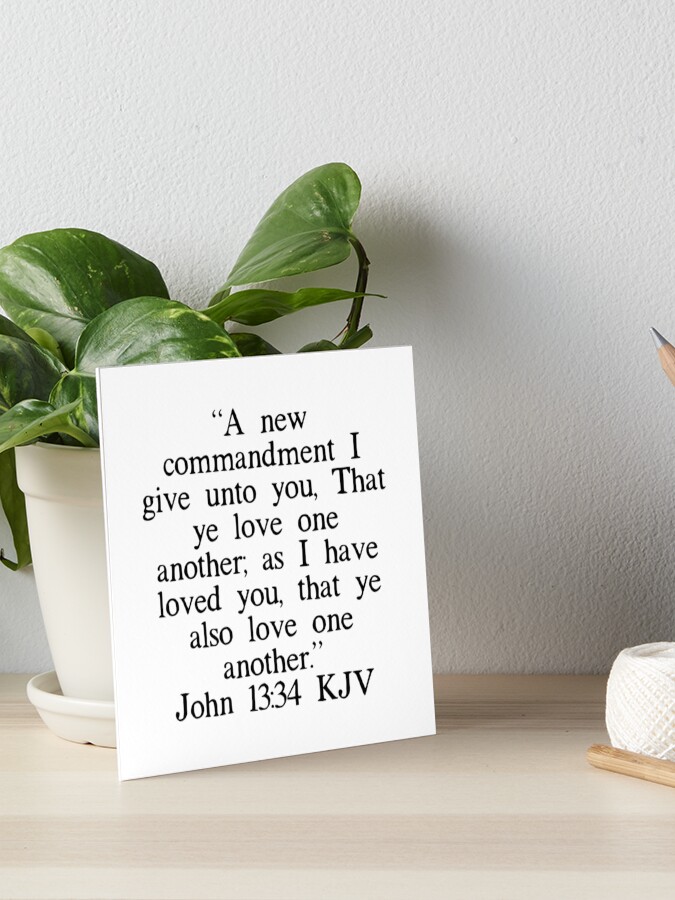 “A new
commandment I
give unto you, That
ye love one
another; as I have
loved you, that ye
also love one
another.”
John 13:34 KJV